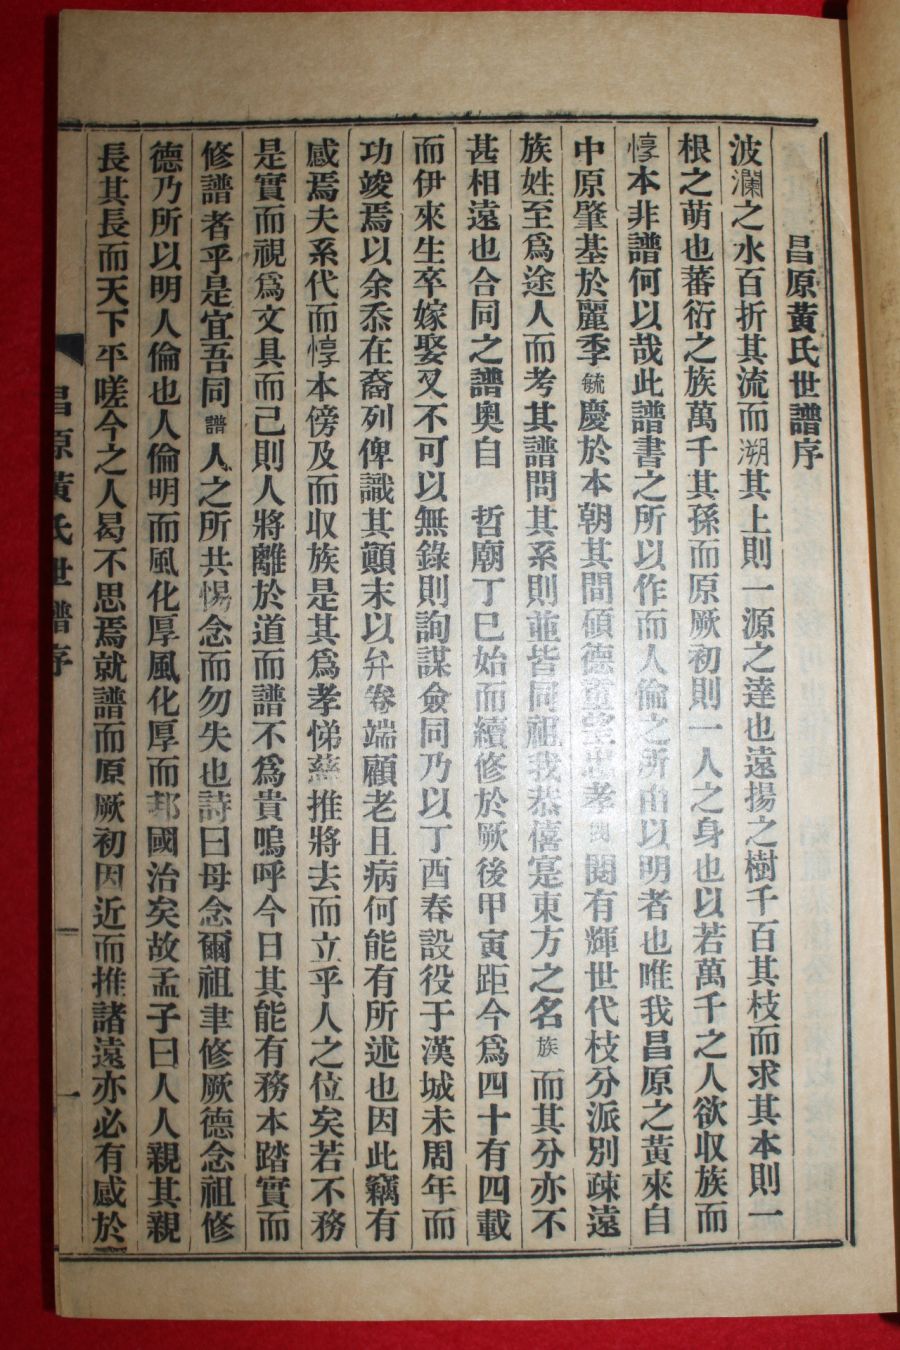 昌原黃氏世譜序
波瀾之水百折其流而溯其上則一源之達也遠揚之樹千百其枝而求其本則一
根之萌也蕃衍之族萬千其孫而原厥初則一人之身也以若萬千之人欲収族而
惇本非譜何以哉此譜書之所以作而人倫之所由以明者也唯我昌原之黃來自
中原肇基於麗季毓慶於本朝其間碩德重望忠孝閥閱有輝世代枝分派別疎遠
族姓至爲途人而考其譜問其系則並皆同祖我恭僖寔東方之名族而其分亦不
甚相遠也合同之譜奧自 哲廟丁巳始而續修於厥後甲寅距今爲四十有四載
而伊來生卒嫁娶又不可以無錄則詢謀僉同乃以丁酉春設役于漢城未周年而
功竣焉以余忝在裔列俾識其顚末以弁卷端顧老且病何能有所述也因此竊有
感焉夫系代而惇本傍及而収族是其爲孝悌慈推將去而立乎人之位矣若不務
是實而視爲文具而已則人將離於道而譜不爲貴嗚呼今日其能有務本踏實而
修譜者乎是宜吾同譜人之所共惕念而勿失也詩曰毋念爾祖聿修厥德念祖修
德乃所以明人倫也人倫明而風化厚風化厚而邦國治矣故孟子曰人人親其親
長其長而天下平嗟今之人曷不思焉就譜而原厥初因近而推諸遠亦必有感於
昌原黃氏世譜序
一